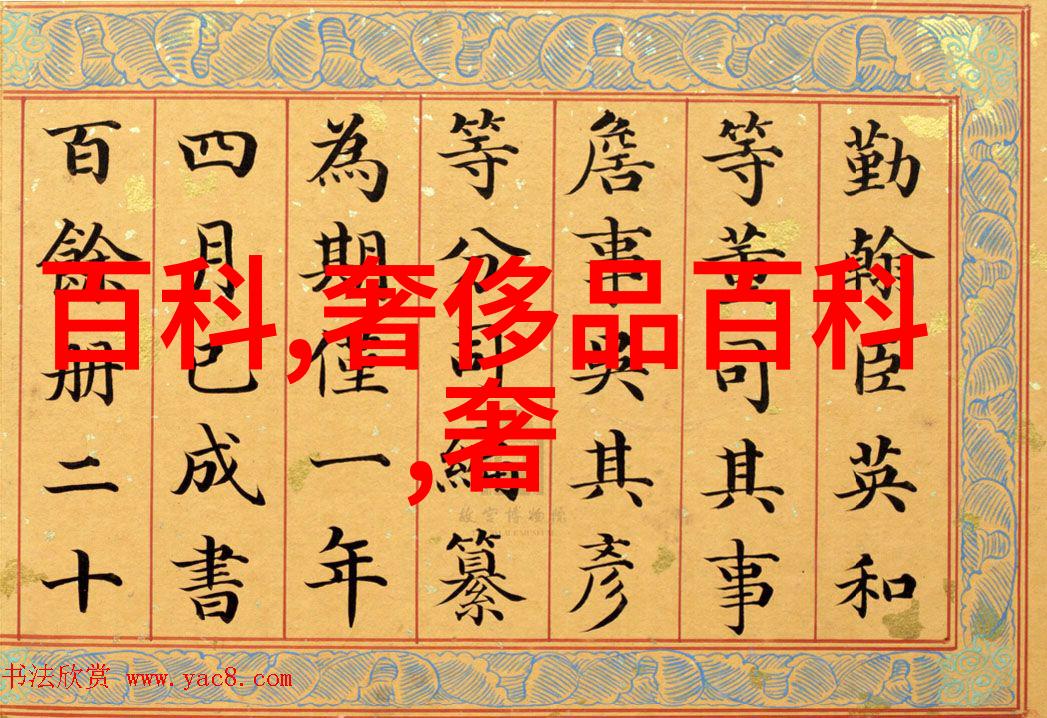 勤翰臣英和
等董司其事
詹事吳其彥
等分司編纂
為期僅一年
四月已成書
百餘册二十
百科,奢侈品百科
,奢
故宫博物院
书法欣赏 www.yac8.com